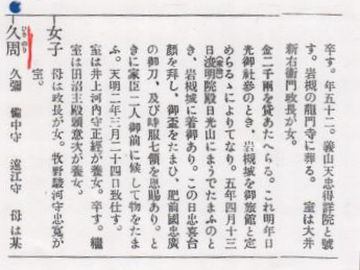 卒す。年五十二。義山天忠得詳院と號
す。岩槻の龍門寺に葬る。 室は大井
新右衛門政長が女。
金二千兩を貸あたへらる。これ明年日
光御社參のとき、岩槻城を御旅館と定
めらるゝによりてなり。五年四月十三
日浚明院殿日光山にまうでたまふのと
(家治)
き、岩槻城に着御あり。この日忠喜台
顏を拜し、御盃をたまひ、肥前國忠廣
の御刀、及び時服七領を恩賜あり。と
きに家臣二人御前に候して物をたま
ふ。天明二年三月二十四日致仕す。
室は井上河内守正經が養女。卒す。繼
室は田沼主殿頭意次が養女。
女子 母は政長が女。牧野駿河守忠寬が
室。
久周 久彌 備中守 遠江守 母は某
ひさのり